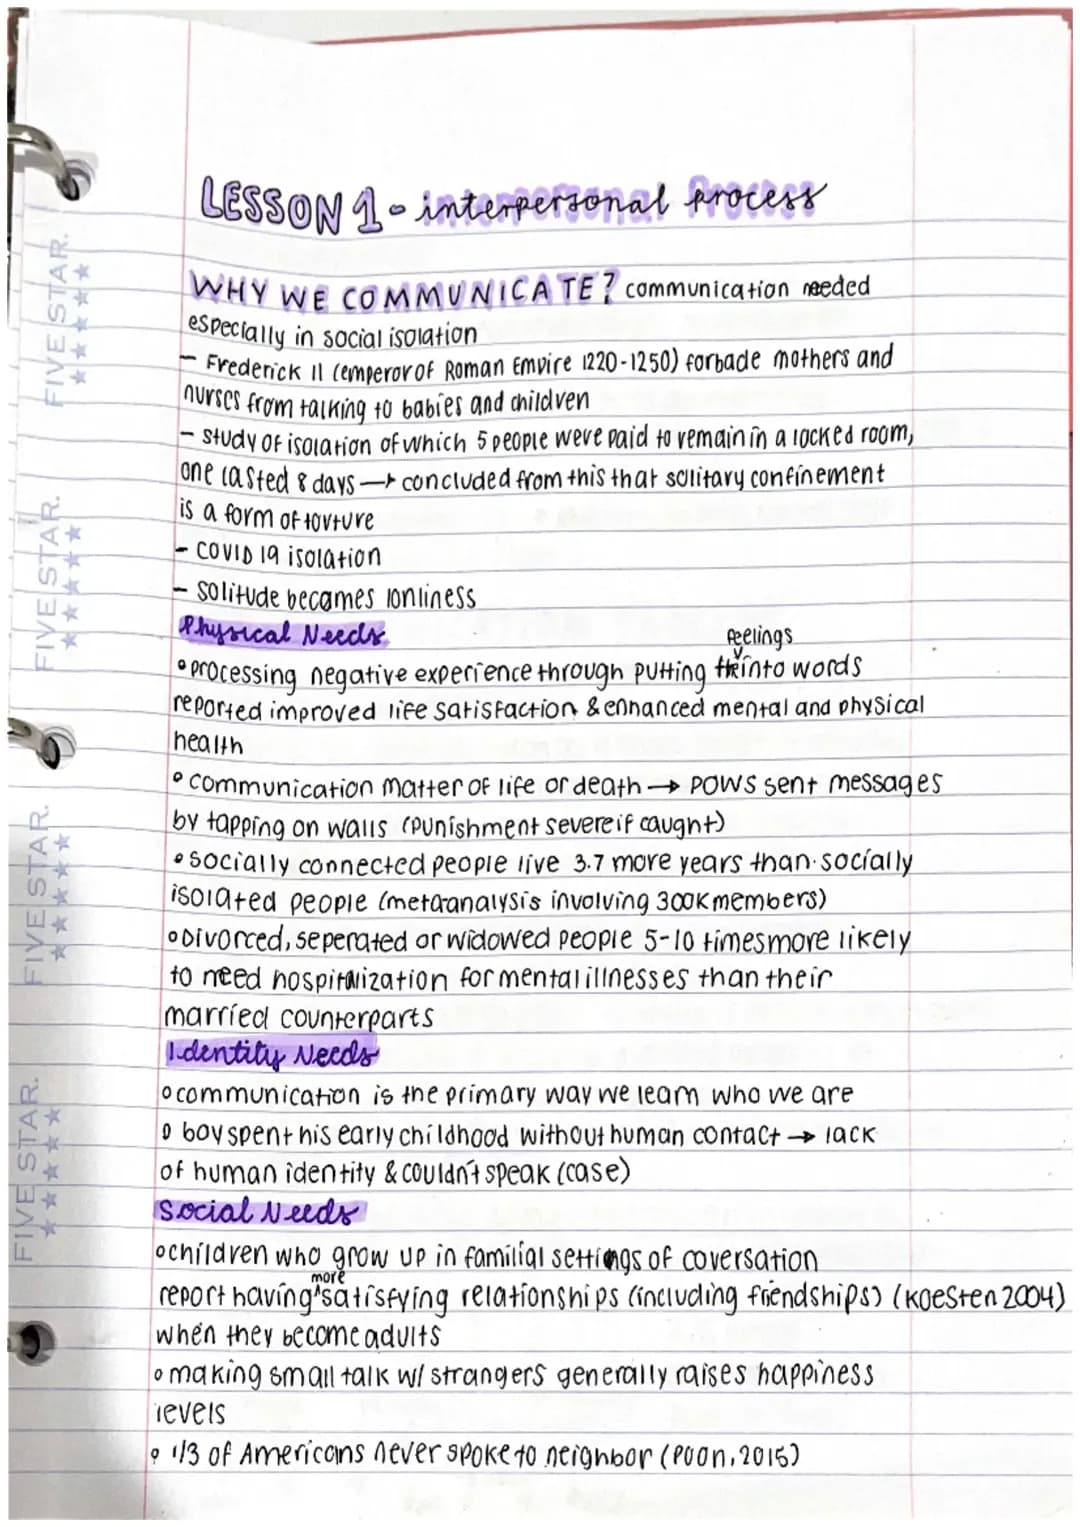 LESSON 1 - interpersonal Process
WHY WE COMMUNICATE? communication needed
especially in social isolation
- Frederick II (emperor of Roman Empire 1220-1250) forbade mothers and
nurses from talking to babies and children
- study of isolation of which 5 people were paid to remain in a locked room,
one lasted 8 days → concluded from this that solitary confinement
is a form of torture
- COVID 19 isolation
- solitude becomes lonliness
Physical Needs
feelings
• processing negative experience through putting into words
reported improved life satisfaction & enhanced mental and physical
health
• communication matter of life or death → POWS sent messages
by tapping on walls (punishment severe if caught)
• socially connected people live 3.7 more years than socially
isolated people (metaanalysis involving 300K members)
• Divorced, seperated or widowed people 5-10 times more likely
to need hospitalization for mental illnesses than their
married counterparts
Identity Needs
• communication is the primary way we learn who we are
• boy spent his early childhood without human contact → lack
of human identity & couldn't speak (case)
Social Needs
• children who grow up in familial settings of coversation
more
report having satisfying relationships (including friendships) (Koesten 2004)
when they become adults
• making small talk w/ strangers generally raises happiness
levels
• 1/3 of Americans never spoke to neighbor (Poon, 2015)
FIVE STAR.
FIVE STAR.
FIVE STAR.
FIVE STAR.